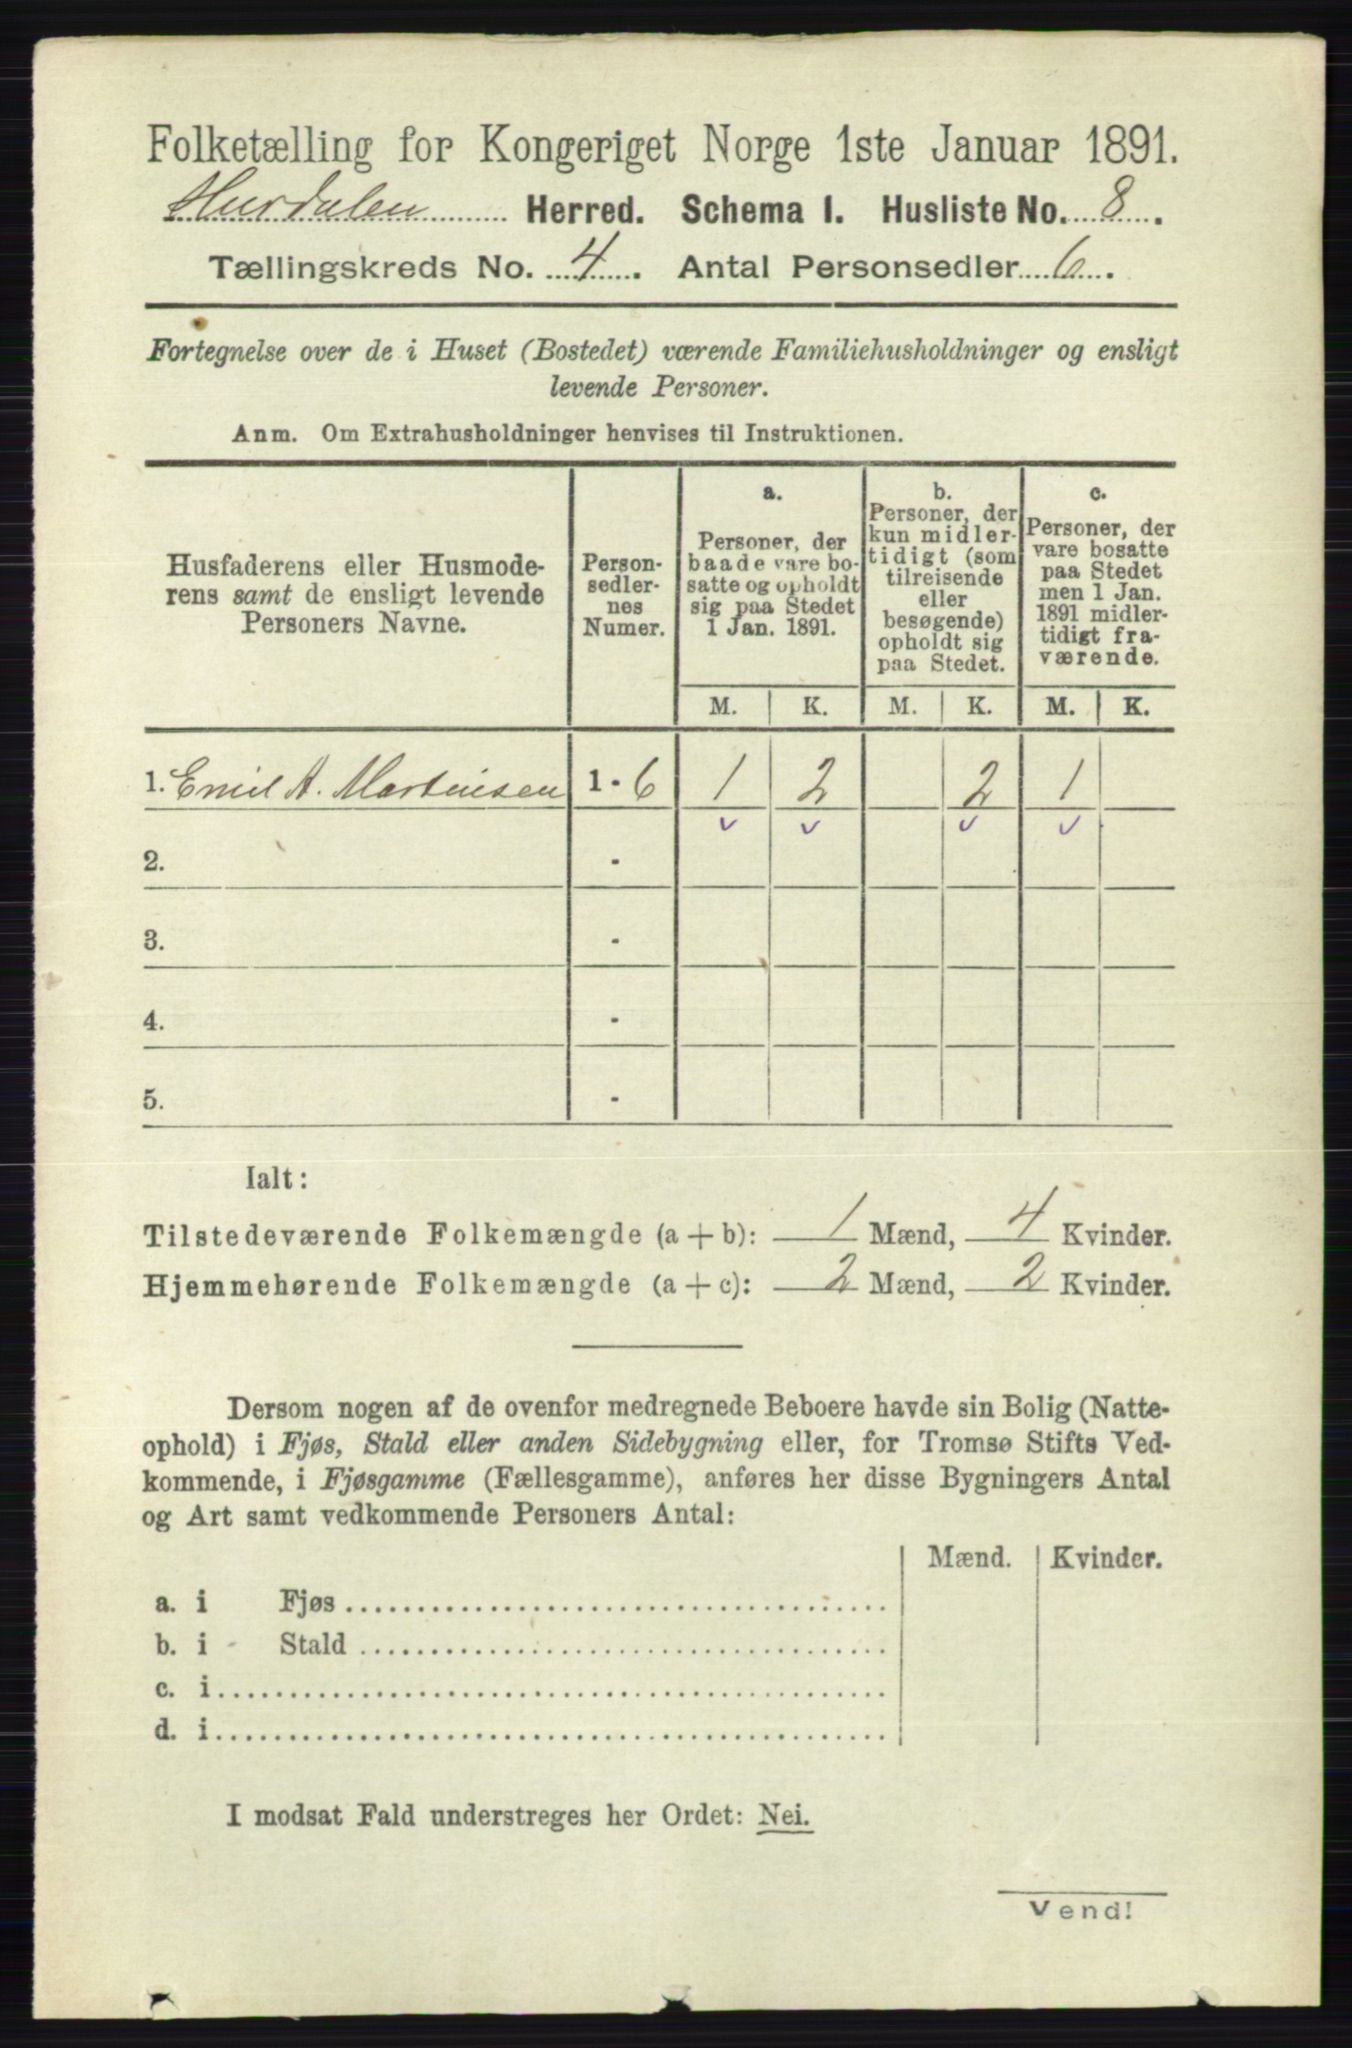 Folketælling for Kongeriget Norge 1ste Januar 1891.
Hurdalen Herred. Schema I. Husliste No. 8.
Tællingskreds No. 4. Antal Personsedler 6.
Fortegnelse over de i Huset (Bostedet) værende Familiehusholdninger og ensligt
levende Personer.
Anm. Om Extrahusholdninger henvises til Instruktionen.
Husfaderens eller Husmode-
rens samt de ensligt levende
Personers Navne.
Person-
sedler-
nes
Numer.
a.
Personer, der
baade vare bo-
satte og opholdt
sig paa Stedet
1 Jan. 1891.
b.
Personer, der
kun midler-
tidigt (som
tilreisende
eller
besøgende)
opholdt sig
paa Stedet.
c.
Personer, der
vare bosatte
paa Stedet
men 1 Jan.
1891 midler-
tidigt fra-
værende.
M. K. M. K. M. K.
1. Emil A. Martinsen 1 - 6 1 2 2 1
2. -
3. -
4. -
5. -
Ialt:
Tilstedeværende Folkemængde (a + b): 1 Mænd, 4 Kvinder.
Hjemmehørende Folkemængde (a + c): 2 Mænd, 2 Kvinder.
Dersom nogen af de ovenfor medregnede Beboere havde sin Bolig (Natte-
ophold) i Fjøs, Stald eller anden Sidebygning eller, for Tromsø Stifts Ved-
kommende, i Fjøsgamme (Fællesgamme), anføres her disse Bygningers Antal
og Art samt vedkommende Personers Antal:
Mænd. Kvinder.
a. i Fjøs
b. i Stald
c. i
d. i
I modsat Fald understreges her Ordet: Nei.
Vend!